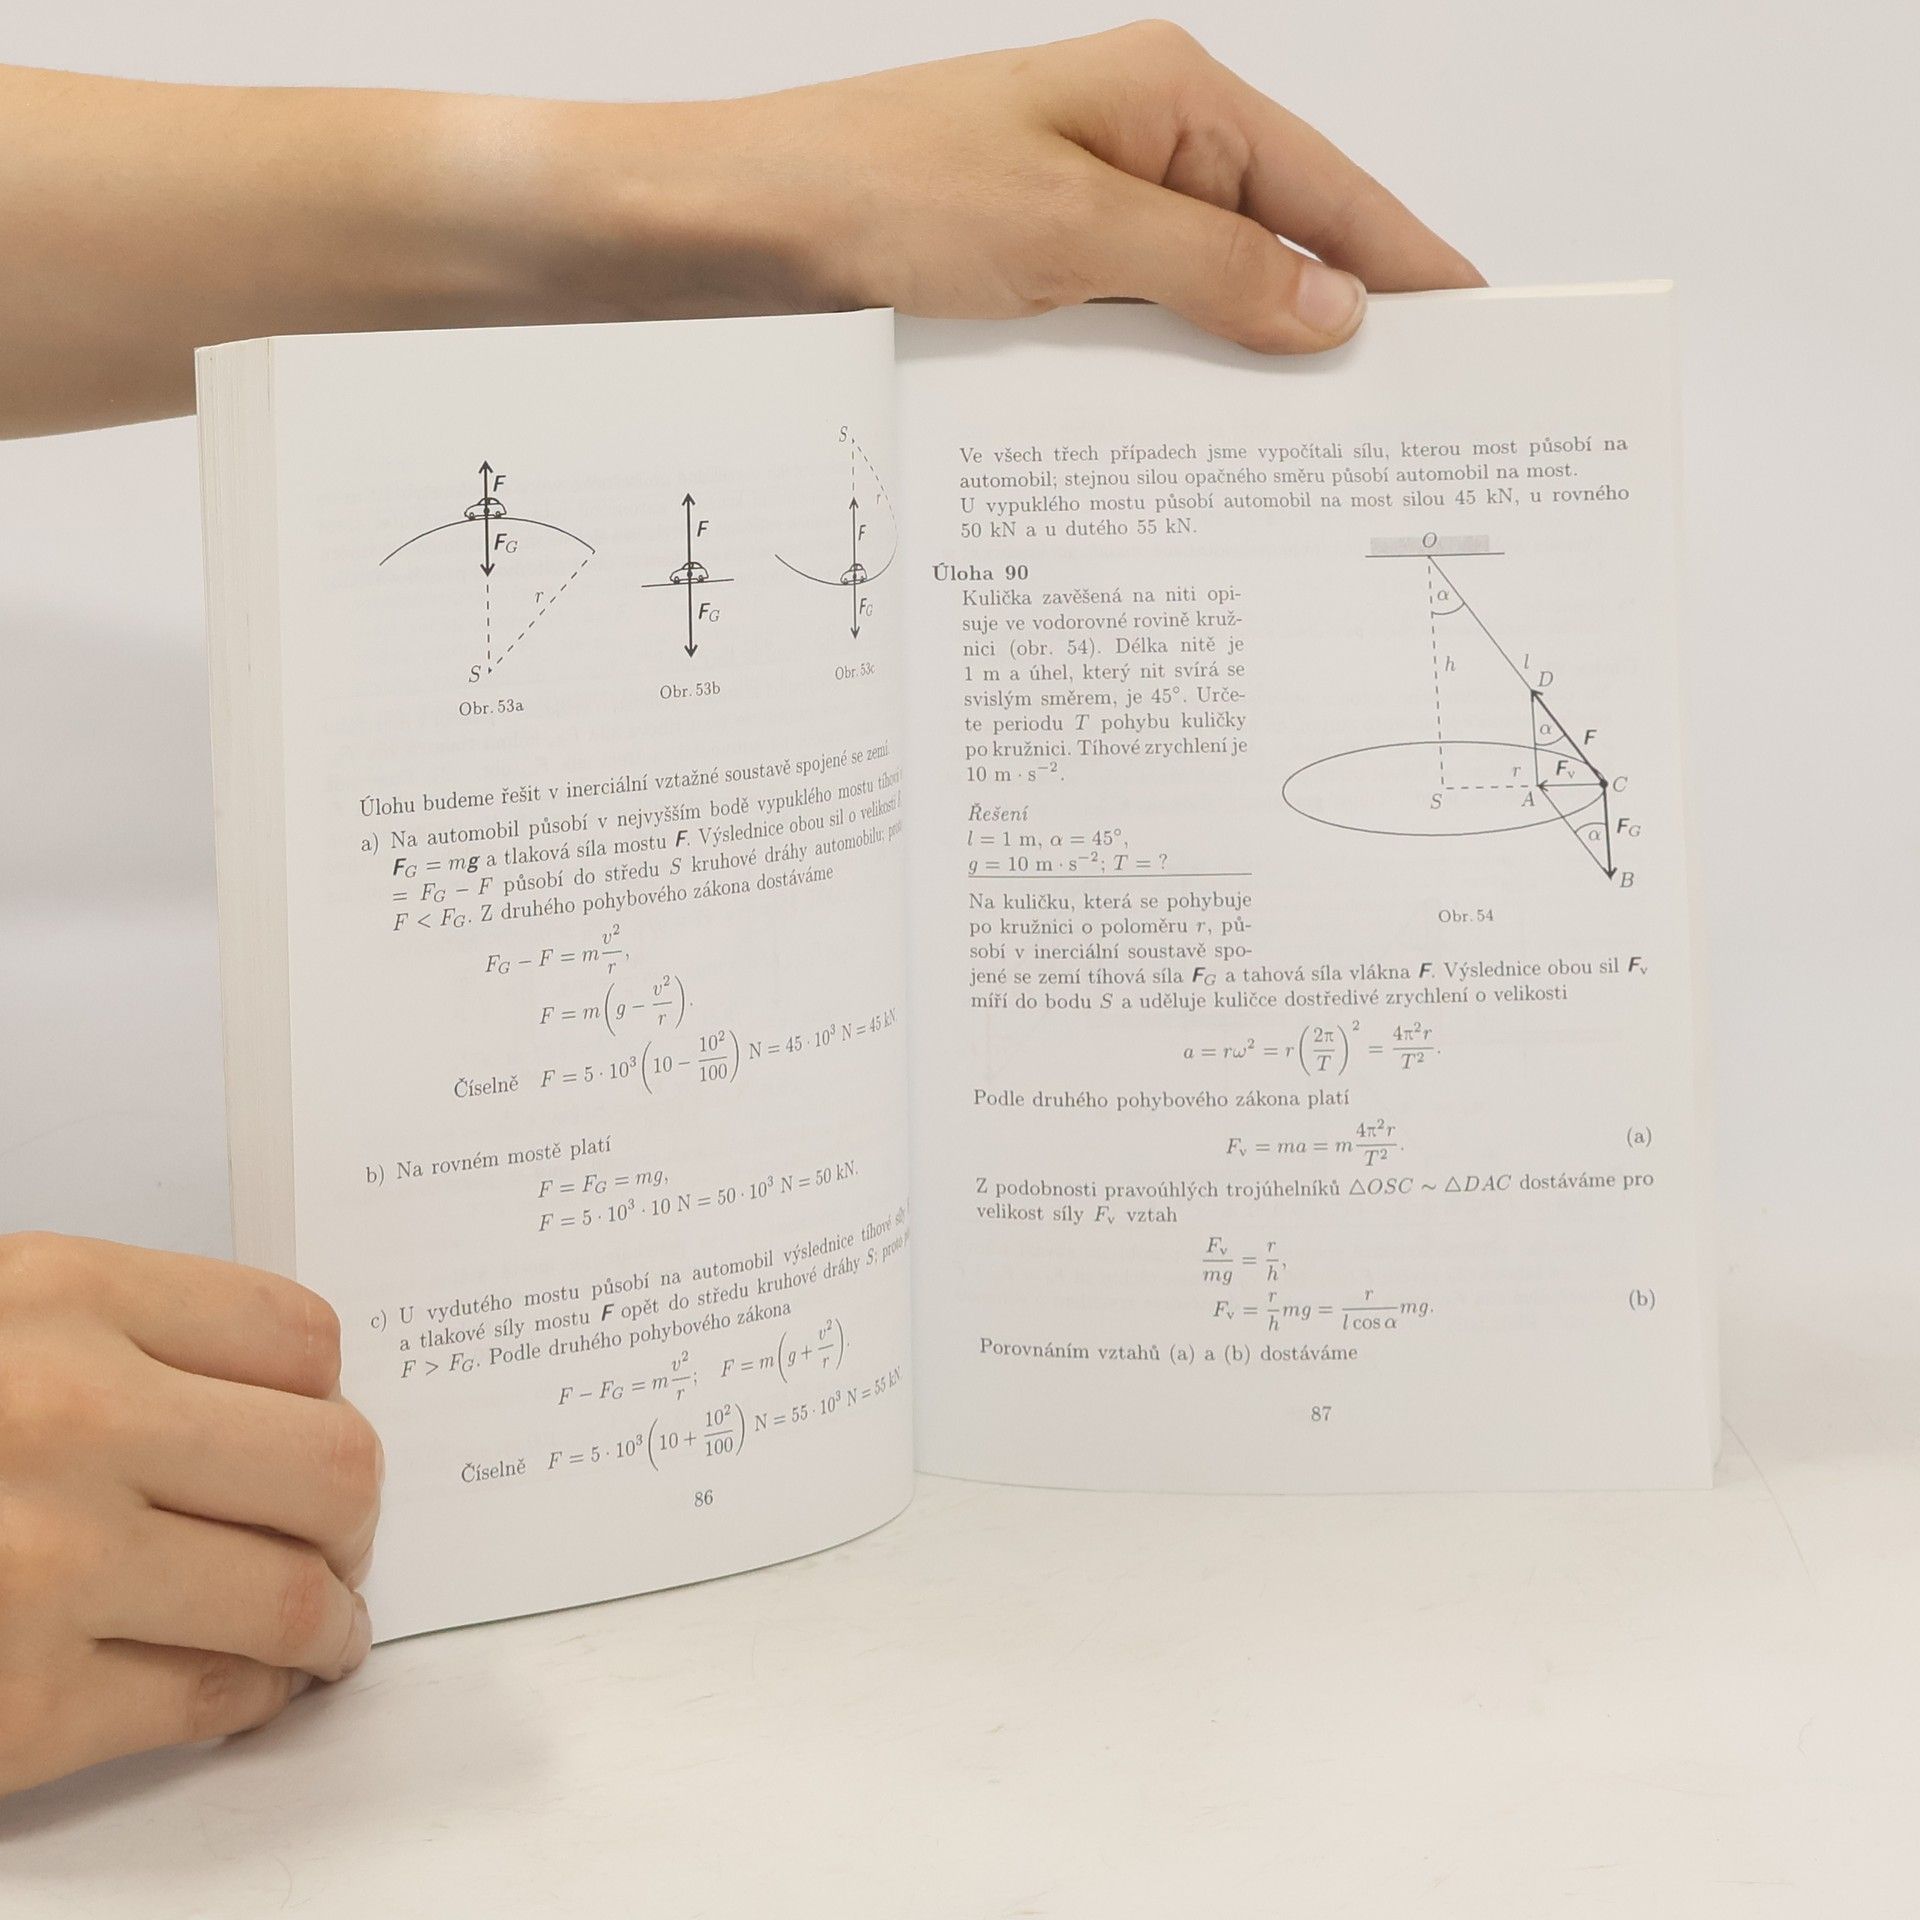 F
F_G
r
S
Obr. 53a
F
F_G
Obr. 53b
S
r
F
F_G
Obr. 53c
Úlohu budeme řešit v inerciální vztažné soustavě spojené se zemí.
a) Na automobil působí v nejvyšším bodě vypuklého mostu tíhová
F_G = mg a tlaková síla mostu F. Výslednice obou sil o velikosti
= F_G − F působí do středu S kruhové dráhy automobilu;
F < F_G. Z druhého pohybového zákona dostáváme
F_G − F = m v²/r,
F = m(g − v²/r).
Číselně F = 5 · 10³ (10 − 10²/100) N = 45 · 10³ N = 45 kN.
b) Na rovném mostě platí
F = F_G = mg,
F = 5 · 10³ · 10 N = 50 · 10³ N = 50 kN.
c) U vydutého mostu působí na automobil výslednice tíhové síly
a tlakové síly mostu F opět do středu kruhové dráhy S; proto
F > F_G. Podle druhého pohybového zákona
F − F_G = m v²/r; F = m(g + v²/r).
Číselně F = 5 · 10³ (10 + 10²/100) N = 55 · 10³ N = 55 kN.
86
Ve všech třech případech jsme vypočítali sílu, kterou most působí na
automobil; stejnou silou opačného směru působí automobil na most.
U vypuklého mostu působí automobil na most silou 45 kN, u rovného
50 kN a u dutého 55 kN.
Úloha 90
Kulička zavěšená na niti opi-
suje ve vodorovné rovině kruž-
nici (obr. 54). Délka nitě je
1 m a úhel, který nit svírá se
svislým směrem, je 45°. Urče-
te periodu T pohybu kuličky
po kružnici. Tíhové zrychlení je
10 m · s⁻².
Řešení
l = 1 m, α = 45°,
g = 10 m · s⁻²; T = ?
O
α
h
l
D
α
F
r
F_v
S
A
C
α
F_G
B
Obr. 54
Na kuličku, která se pohybuje
po kružnici o poloměru r, pů-
sobí v inerciální soustavě spo-
jené se zemí tíhová síla F_G a tahová síla vlákna F. Výslednice obou sil F_v
míří do bodu S a uděluje kuličce dostředivé zrychlení o velikosti
a = rω² = r(2π/T)² = 4π²r/T².
Podle druhého pohybového zákona platí
F_v = ma = m 4π²r/T². (a)
Z podobnosti pravoúhlých trojúhelníků △OSC ∼ △DAC dostáváme pro
velikost síly F_v vztah
F_v/mg = r/h,
F_v = r/h mg = r/(l cos α) mg. (b)
Porovnáním vztahů (a) a (b) dostáváme
87